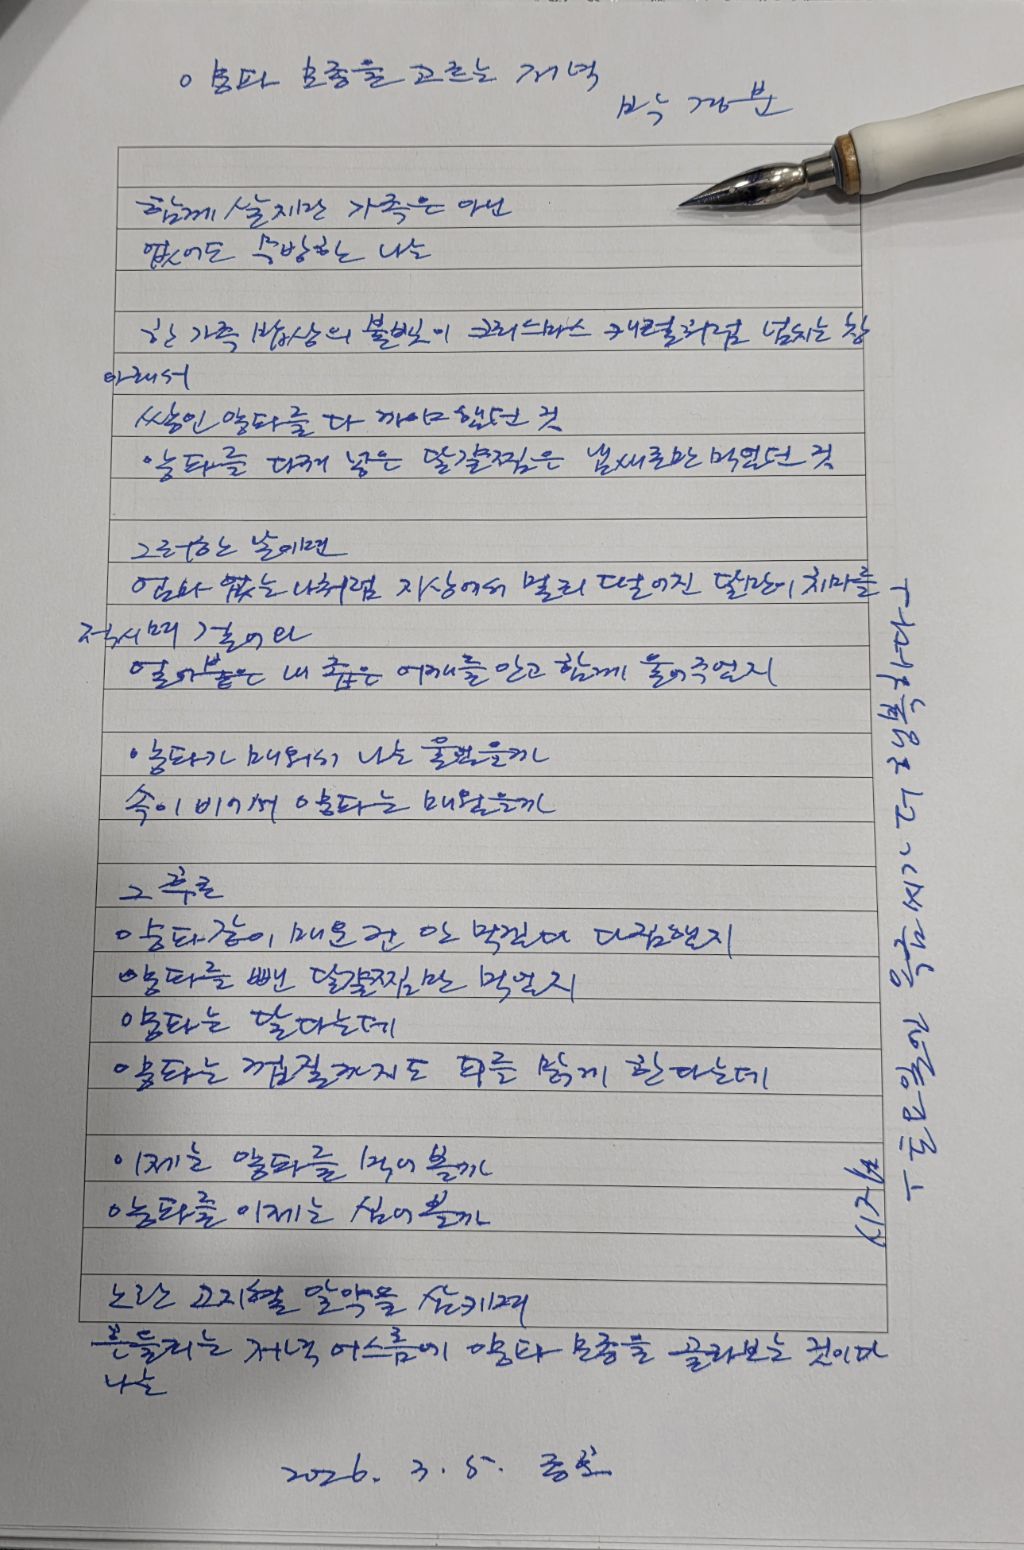 양파 모종을 고르는 저녁
박경분
함께 살지만 가족은 아닌
없어도 무방한 나는
한 가족 밥상의 불빛이 크리스마스 캐럴처럼 넘치는 창
아래서
쌓인 양파를 다 까야 했던 것
양파를 다져 넣은 달걀찜은 냄새로만 먹었던 것
그러한 날에면
엄마 없는 나처럼 지상에서 멀리 떨어진 달만이 치마를
적시며 걸어와
얼어붙은 내 좁은 어깨를 안고 함께 울어주었지
양파가 매워서 나는 울었을까
속이 비어서 양파는 매웠을까
그 후로
양파같이 매운 건 안 먹겠다 다짐했지
양파를 뺀 달걀찜만 먹었지
양파는 달다는데
양파는 껍질까지도 피를 맑게 한다는데
이제는 양파를 먹어볼까
양파를 이제는 심어볼까
노란 고지혈 알약을 삼키며
흔들리는 저녁 어스름에 양파 모종을 골라보는 것이다
나는
2026. 3. 5. 종호
시집